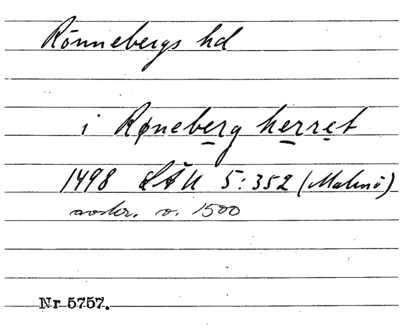 Rönnebergs hd
i Røneberg herret
1498 LÅU 5:352 (Malmö)
avskr. o. 1500
Nr 5757.